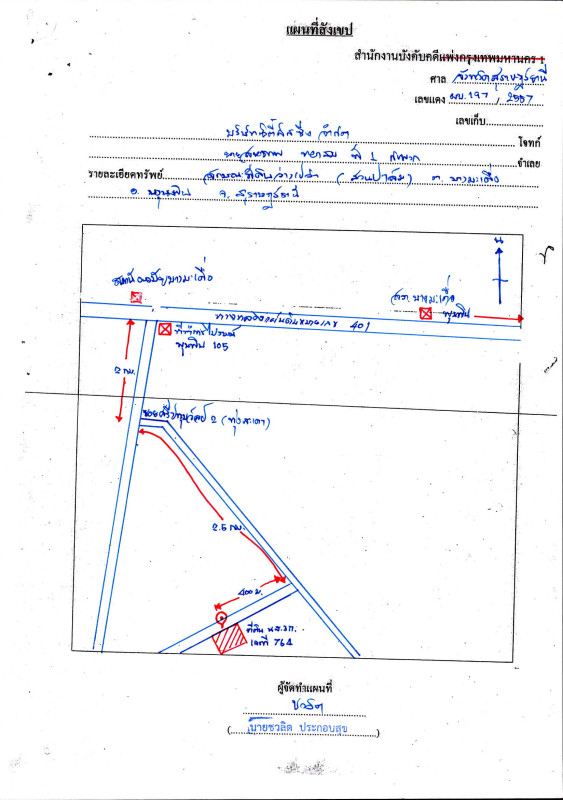 แผนที่สังเขป
สำนักงานบังคับคดีแพ่งกรุงเทพมหานคร 1
ศาล จังหวัดสุราษฎร์ธานี
เลขแดง ผบ.197 / 2557
เลขเก็บ
บริษัท จำกัด โจทก์
ที่ 1 จำเลย
รายละเอียดทรัพย์ ที่ดินว่างเปล่า (สวนปาล์ม) ต. บางมะเดื่อ
อ. พุนพิน จ. สุราษฎร์ธานี
น
บางมะเดื่อ
บางมะเดื่อ
พุนพิน
ทางหลวงแผ่นดินหมายเลข 401
ที่ทำการไปรษณีย์
พุนพิน 105
2 กม.
ซอย 2 (ทุ่งสะเดา)
2.5 กม.
400 ม.
ที่ดิน น.ส.3ก.
เลขที่ 764
ผู้จัดทำแผนที่
ชวลิต
(นายชวลิต ประกอบสุข)